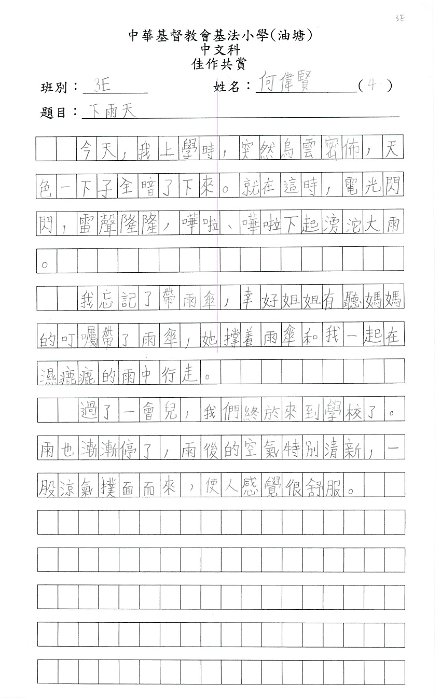 3E
中華基督教會基法小學(油塘)
中文科
佳作共賞
班別：3E 姓名：何偉賢(4)
題目：下雨天
今天，我上學時，突然烏雲密佈，天
色一下子全暗了下來。就在這時，電光閃
閃，雷聲隆隆，嘩啦、嘩啦下起滂沱大雨
。
我忘記了帶雨傘，幸好姐姐有聽媽媽
的叮囑帶了雨傘，她撐着雨傘和我一起在
濕漉漉的雨中行走。
過了一會兒，我們終於來到學校了。
雨也漸漸停了，雨後的空氣特別清新，一
股涼氣撲面而來，使人感覺很舒服。